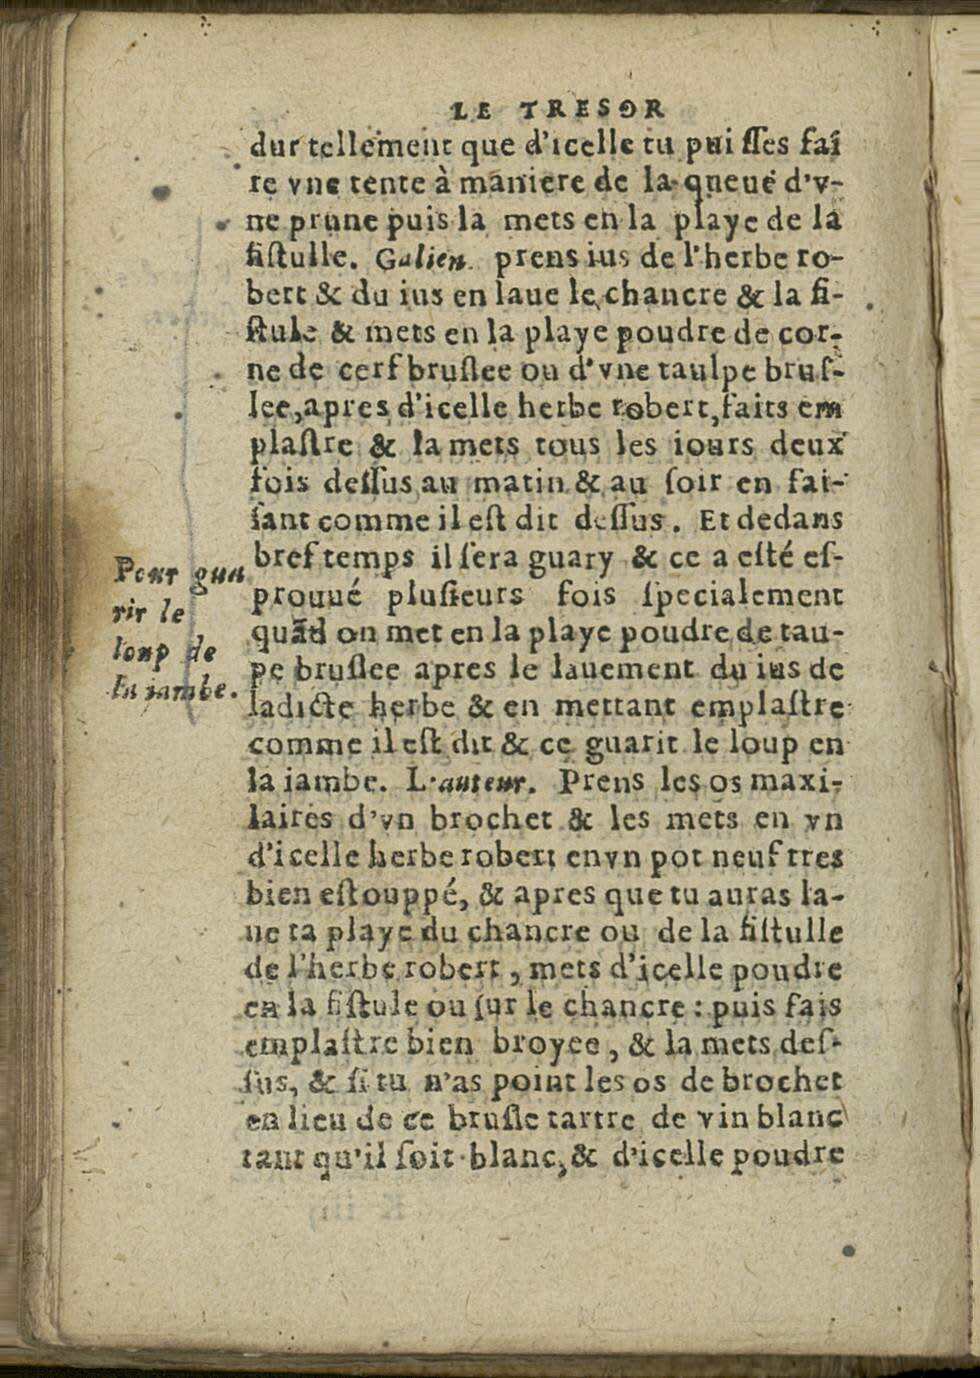 LE TRESOR
dur tellement que d'icelle tu pui ſſes fai
re vne tente à maniere de la queuë d'v-
ne prune puis la mets en la playe de la
fiſtulle. Galien. prens ius de l'herbe ro-
bert & du ius en laue le chancre & la fi-
ſtule & mets en la playe poudre de cor-
ne de cerf bruſlee ou d'vne taulpe bruſ-
lee, apres d'icelle herbe robert, faits em
plaſtre & la mets tous les iours deux
fois deſſus au matin & au ſoir en fai-
ſant comme il eſt dit deſſus. Et dedans
bref temps il ſera guary & ce a eſté eſ-
prouué pluſieurs fois ſpecialement
quād on met en la playe poudre de tau-
pe bruſlee apres le lauement du ius de
ladicte herbe & en mettant emplaſtre
comme il eſt dit & ce guarit le loup en
la iambe. L'auteur. Prens les os maxi-
laires d'vn brochet & les mets en vn
d'icelle herbe robert en vn pot neuf tres
bien eſtouppé, & apres que tu auras la-
ue ta playe du chancre ou de la fiſtulle
de l'herbe robert, mets d'icelle poudre
en la fiſtule ou ſur le chancre : puis fais
emplaſtre bien broyee, & la mets deſ-
ſus, & ſi tu n'as point les os de brochet
en lieu de ce bruſle tartre de vin blanc
tant qu'il ſoit blanc, & d'icelle poudre
Pour gua
rir le
loup de
la iambe.